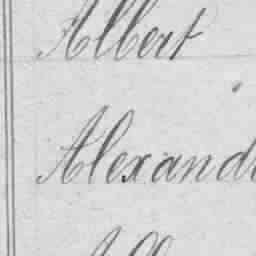 Albert
Alexand